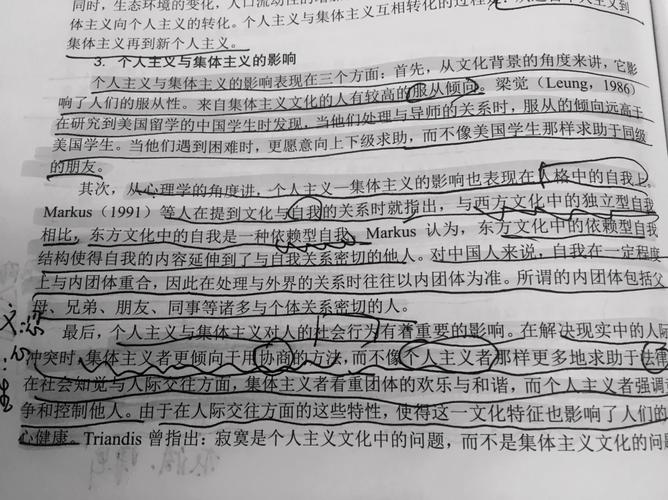 同时，生态环境的变化，人口流动性的增加
体主义向个人主义的转化。个人主义与集体主义互相转化的过程是：从远古个人主义到
集体主义再到新个人主义。
3. 个人主义与集体主义的影响
个人主义与集体主义的影响表现在三个方面：首先，从文化背景的角度来讲，它影
响了人们的服从性。来自集体主义文化的人有较高的服从倾向。梁觉（Leung，1986）
在研究到美国留学的中国学生时发现，当他们处理与导师的关系时，服从的倾向远高于
美国学生。当他们遇到困难时，更愿意向上下级求助，而不像美国学生那样求助于同级
的朋友。
其次，从心理学的角度讲，个人主义—集体主义的影响也表现在人格中的自我上。
Markus（1991）等人在提到文化与自我的关系时就指出，与西方文化中的独立型自我
相比，东方文化中的自我是一种依赖型自我。Markus 认为，东方文化中的依赖型自我
结构使得自我的内容延伸到了与自我关系密切的他人。对中国人来说，自我在一定程度
上与内团体重合，因此在处理与外界的关系时往往以内团体为准。所谓的内团体包括父
母、兄弟、朋友、同事等诸多与个体关系密切的人。
最后，个人主义与集体主义对人的社会行为有着重要的影响。在解决现实中的人际
冲突时，集体主义者更倾向于用协商的方法，而不像个人主义者那样更多地求助于法
在社会知觉与人际交往方面，集体主义者看重团体的欢乐与和谐，而个人主义者强调
争和控制他人。由于在人际交往方面的这些特性，使得这一文化特征也影响了人们的
心健康。Triandis 曾指出：寂寞是个人主义文化中的问题，而不是集体主义文化的问